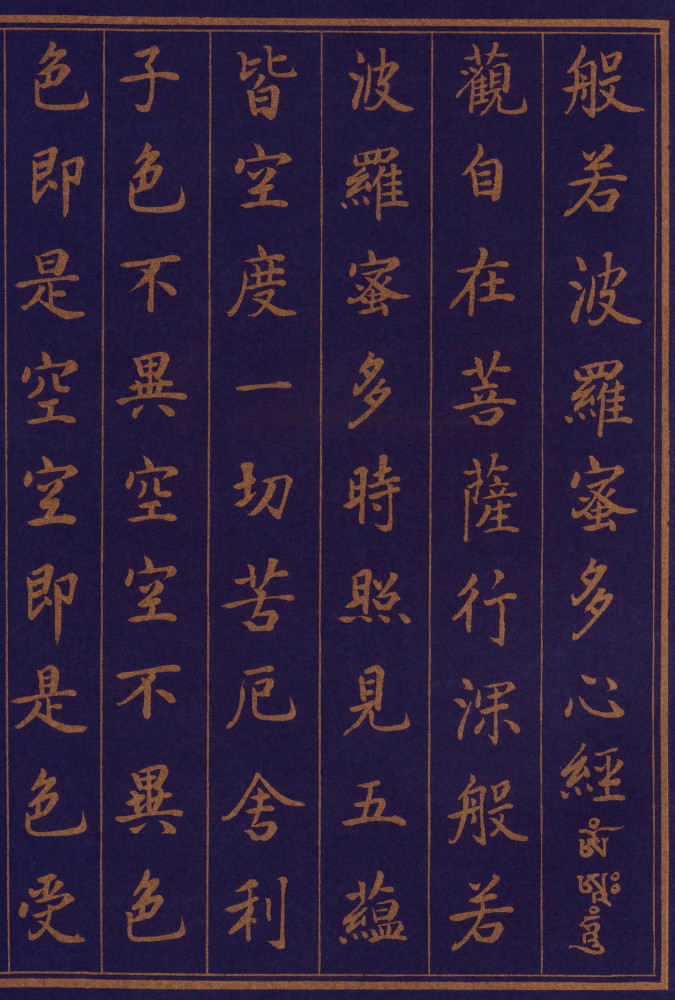 般若波羅蜜多心經
觀自在菩薩行深般若
波羅蜜多時照見五蘊
皆空度一切苦厄舍利
子色不異空空不異色
色即是空空即是色受